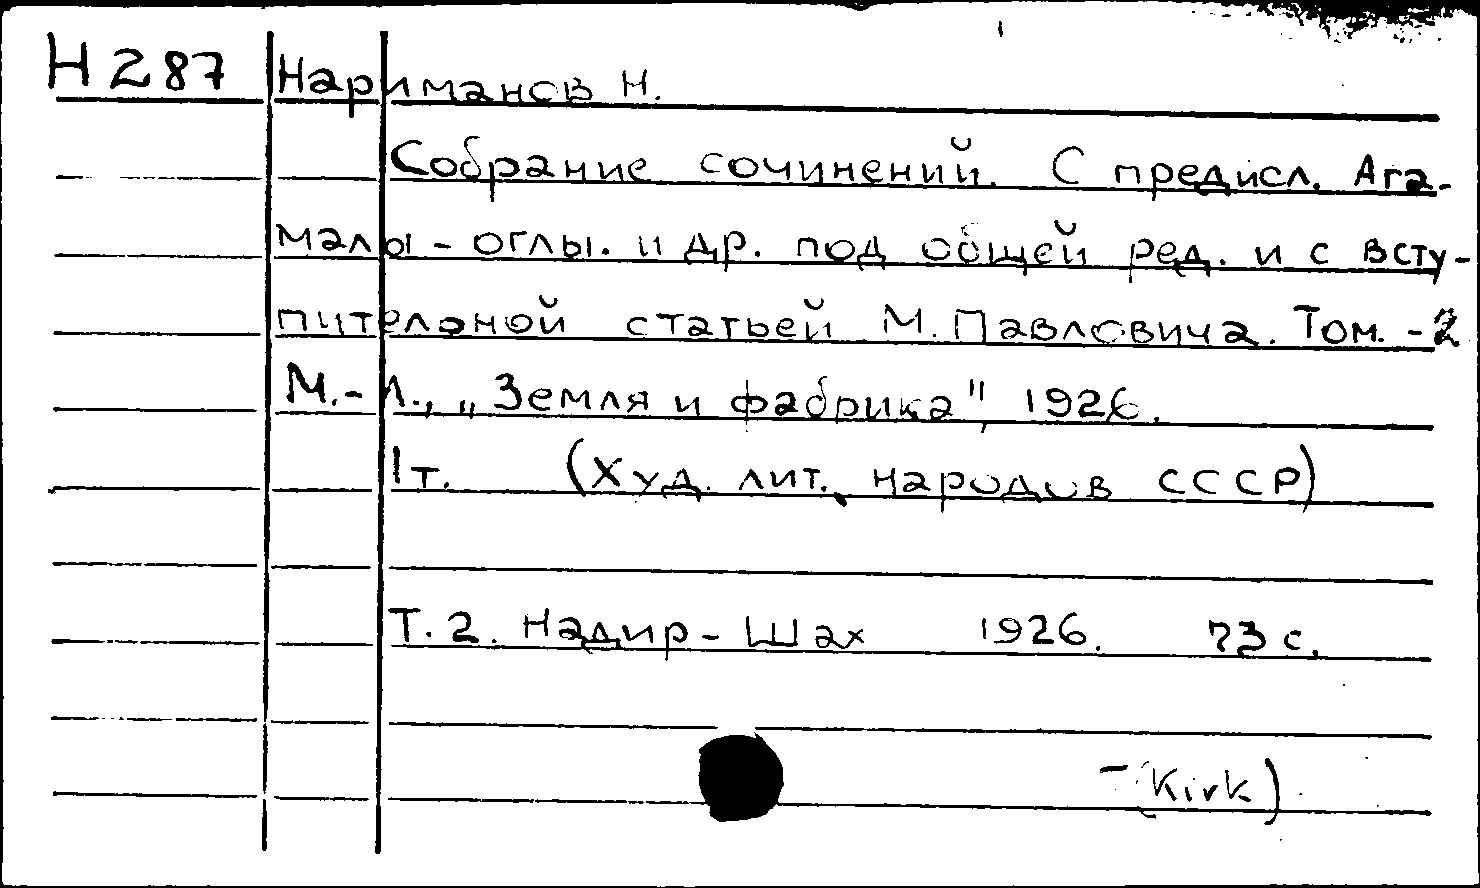 Н 287 Нариманов Н.
Собрание сочинений. С предисл. Ага-
малы-оглы. и др. под общей ред. и с всту-
пительной статьей М. Павловича. Том. -2
М.-Л., „Земля и фабрика", 1926.
1т. (Худ. лит. народов СССР)
Т. 2. Надир-Шах 1926. 73 с.
-(Kirk)